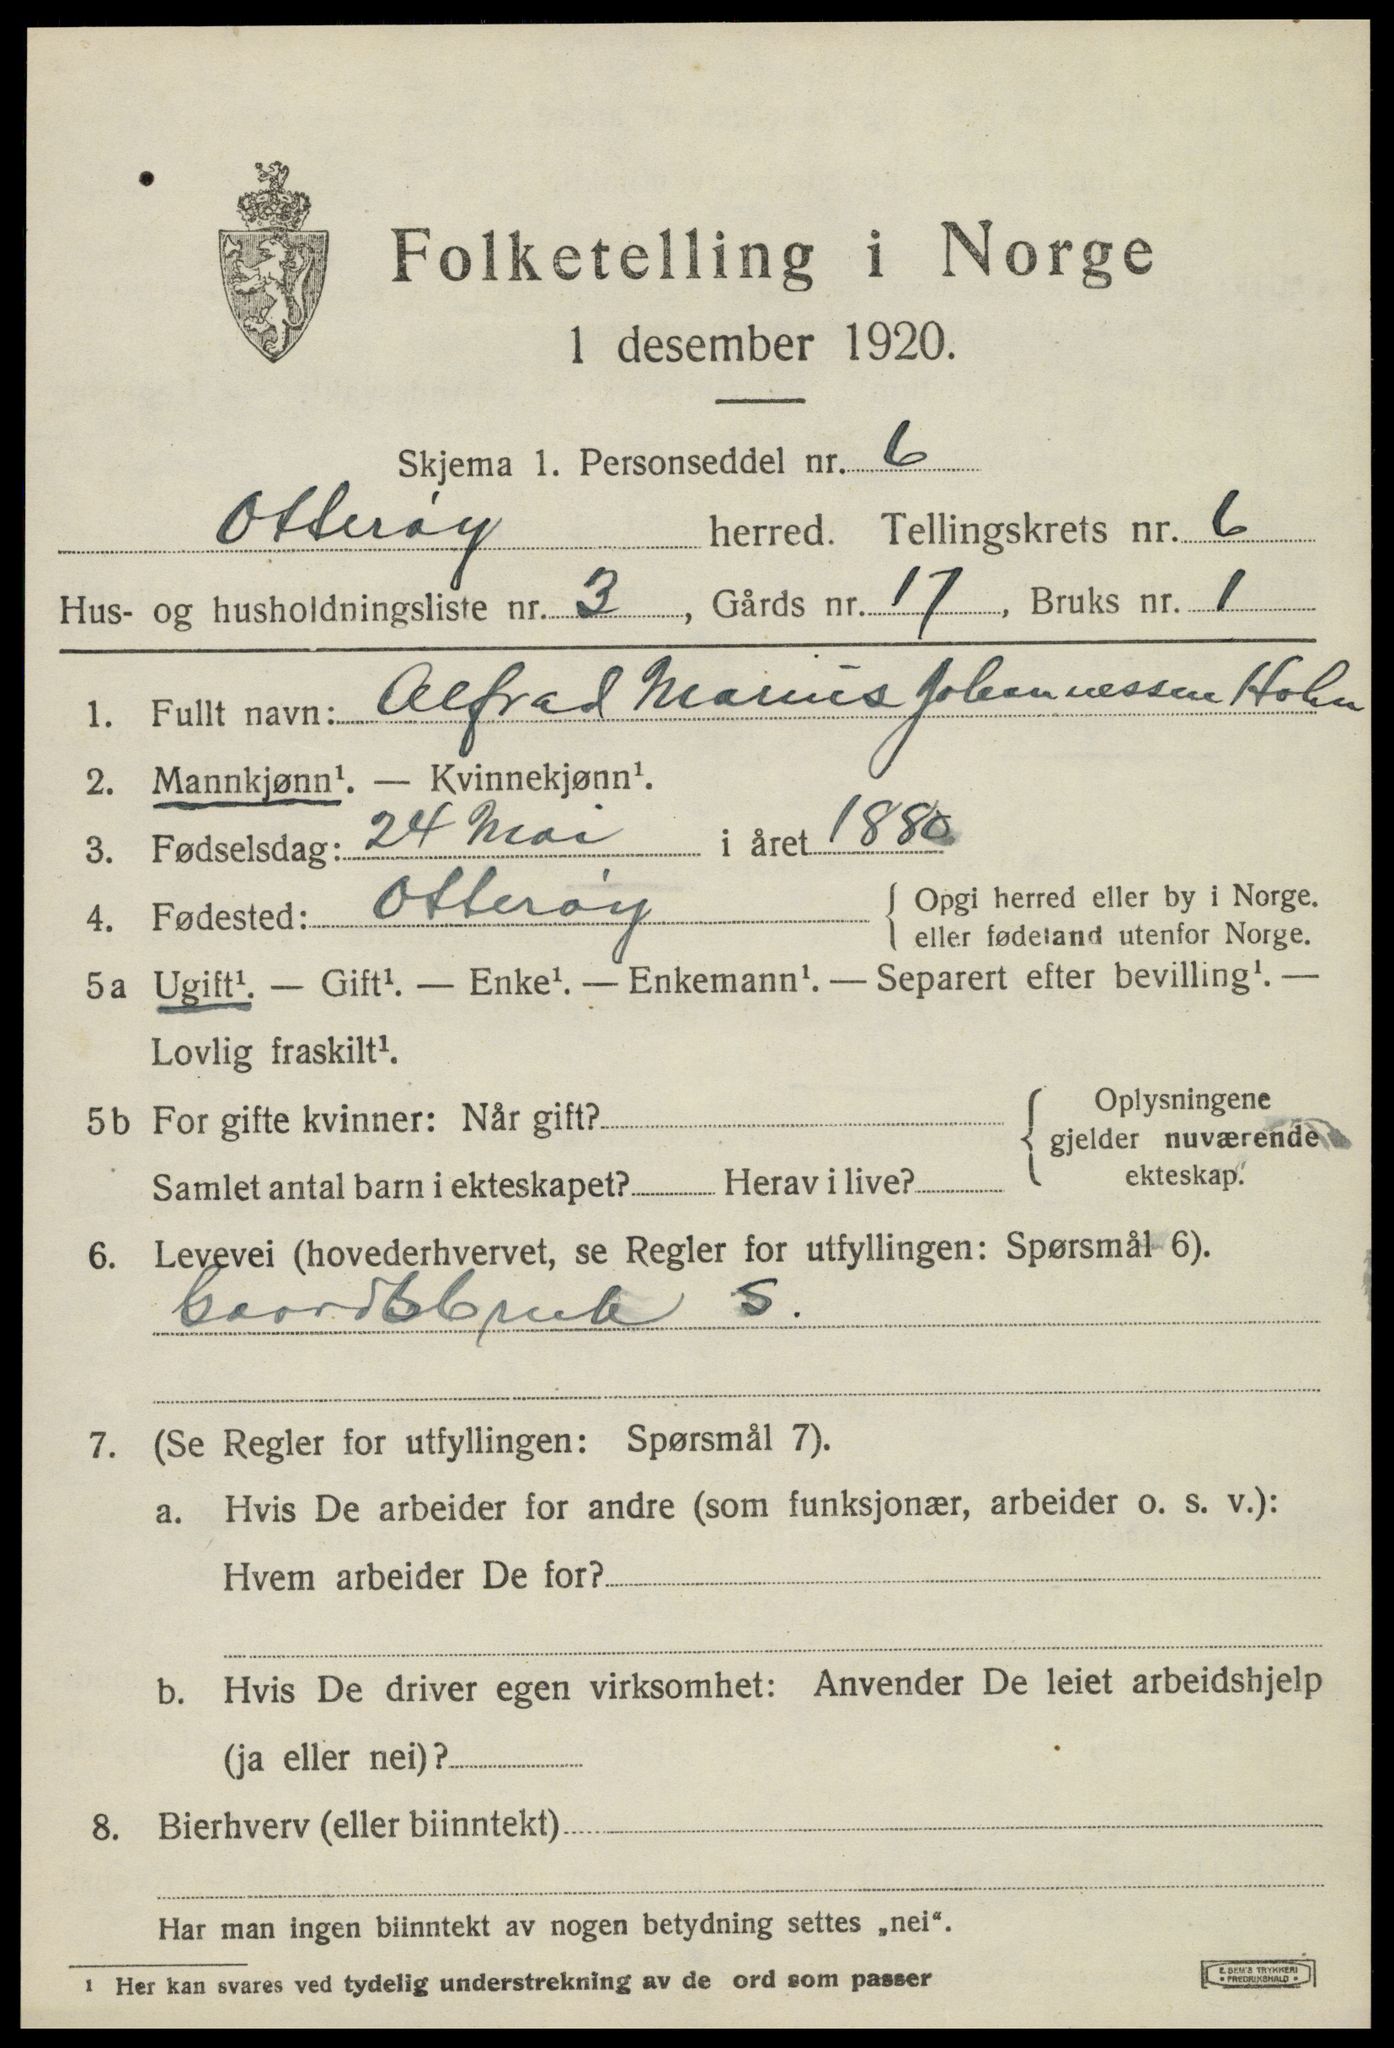 Folketelling i Norge
1 desember 1920.
Skjema 1. Personseddel nr. 6
Otterøy herred. Tellingskrets nr. 6
Hus- og husholdningsliste nr. 3, Gårds nr. 17, Bruks nr. 1
1. Fullt navn: Alfrad Marius Johannessen Holm
2. Mannkjønn¹. — Kvinnekjønn¹.
3. Fødselsdag: 24 Mai i året 1880
4. Fødested: Otterøy { Opgi herred eller by i Norge.
eller fødeland utenfor Norge.
5a Ugift¹. — Gift¹. — Enke¹. — Enkemann¹. — Separert efter bevilling¹. —
Lovlig fraskilt¹.
5b For gifte kvinner: Når gift? { Oplysningene
gjelder nuværende
ekteskap.
Samlet antal barn i ekteskapet? Herav i live?
6. Levevei (hovederhvervet, se Regler for utfyllingen: Spørsmål 6).
Gaardsbruk S.
7. (Se Regler for utfyllingen: Spørsmål 7).
a. Hvis De arbeider for andre (som funksjonær, arbeider o. s. v.):
Hvem arbeider De for?
b. Hvis De driver egen virksomhet: Anvender De leiet arbeidshjelp
(ja eller nei)?
8. Bierhverv (eller biinntekt)
Har man ingen biinntekt av nogen betydning settes „nei“.
¹ Her kan svares ved tydelig understrekning av de ord som passer
E. SEM'S TRYKKERI
• FREDRIKSHALD •